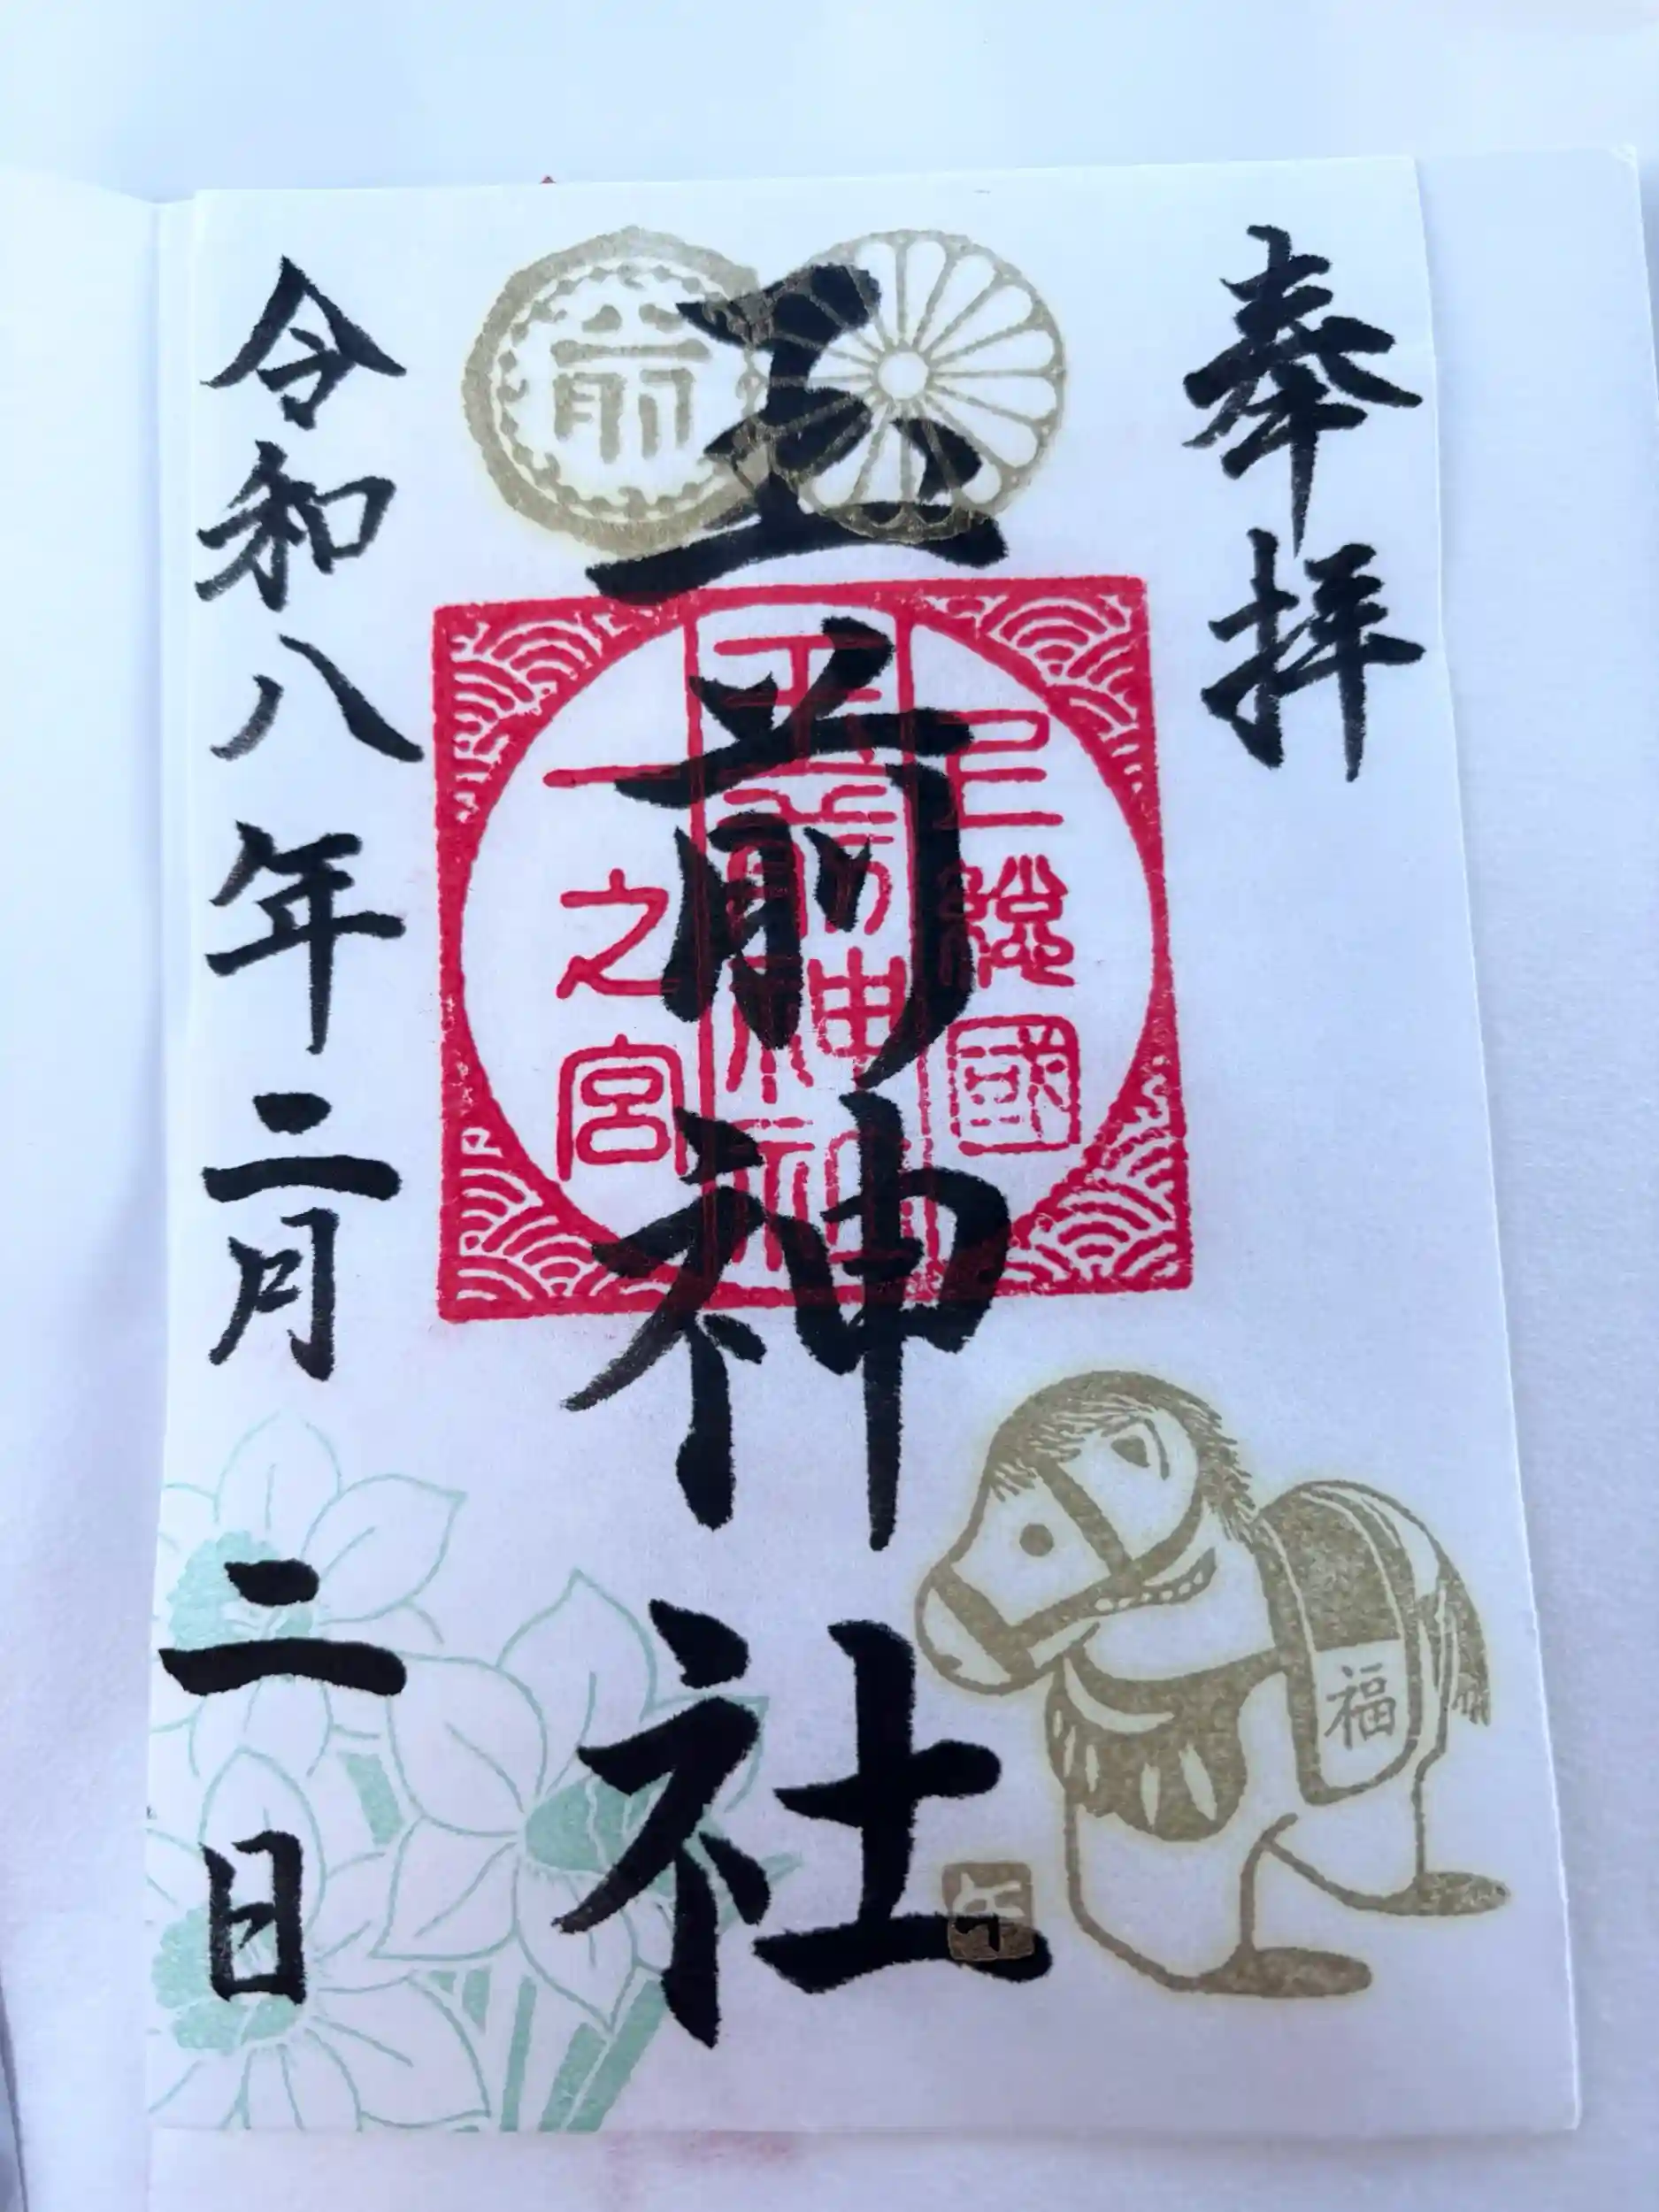 奉拝
玉前神社
上總國
玉前神社
一之宮
前
福
午
令和八年二月二日